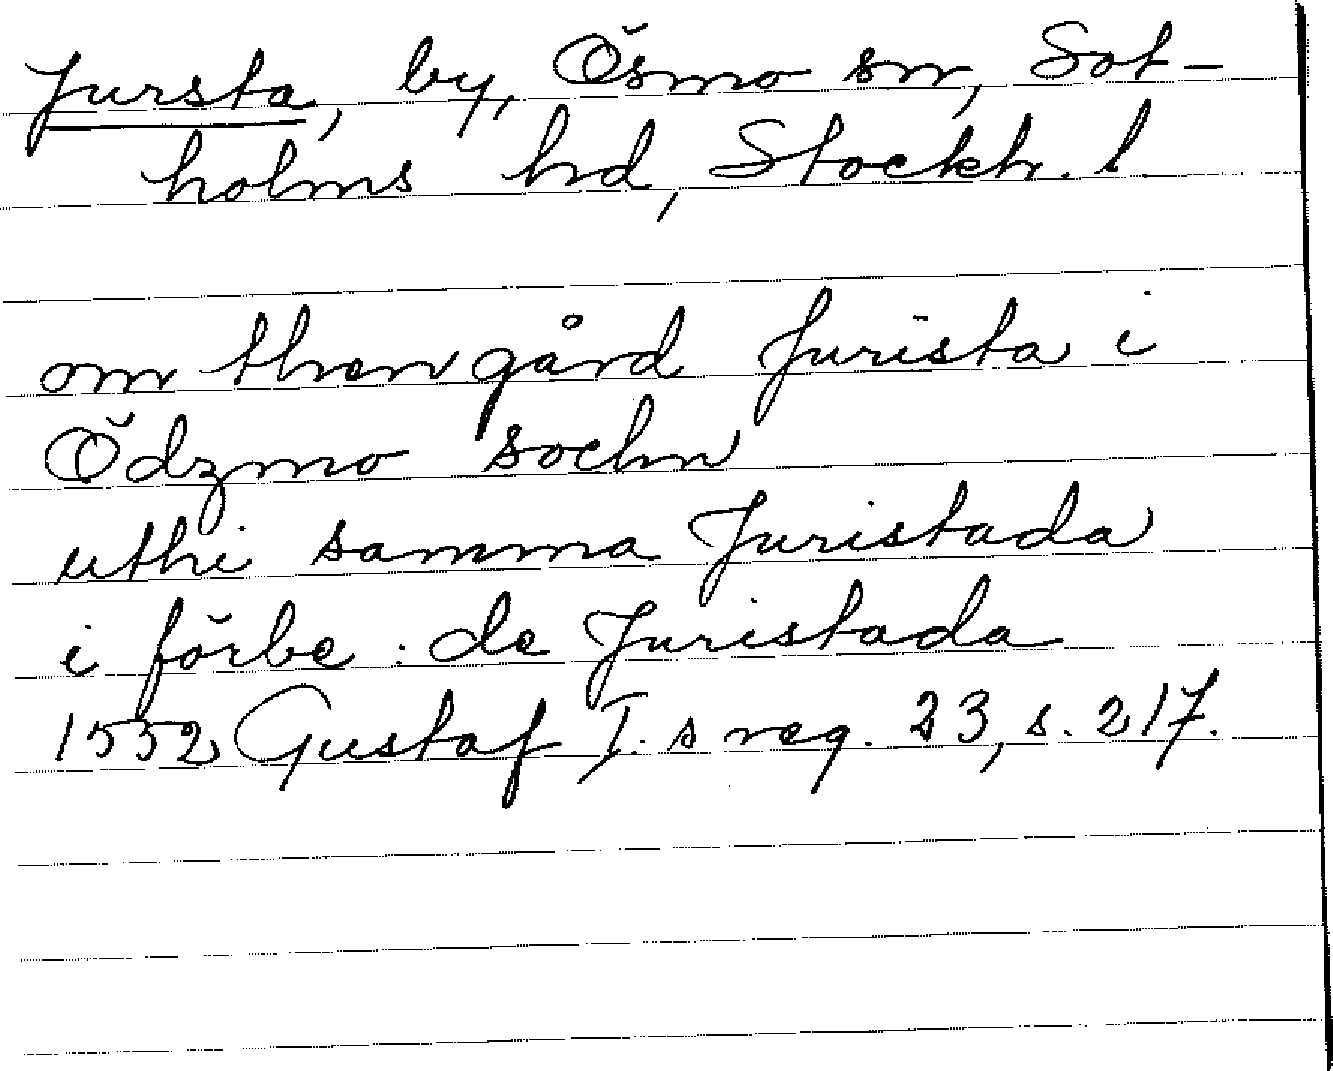 Jursta, by, Ösmo sn, Sot-
holms hd, Stockh. l
om then gård Jurista i
Ödzmo sochn
uthi samma Juristada
i förbe: de Juristada
1552 Gustaf I:s reg. 23, s. 217.